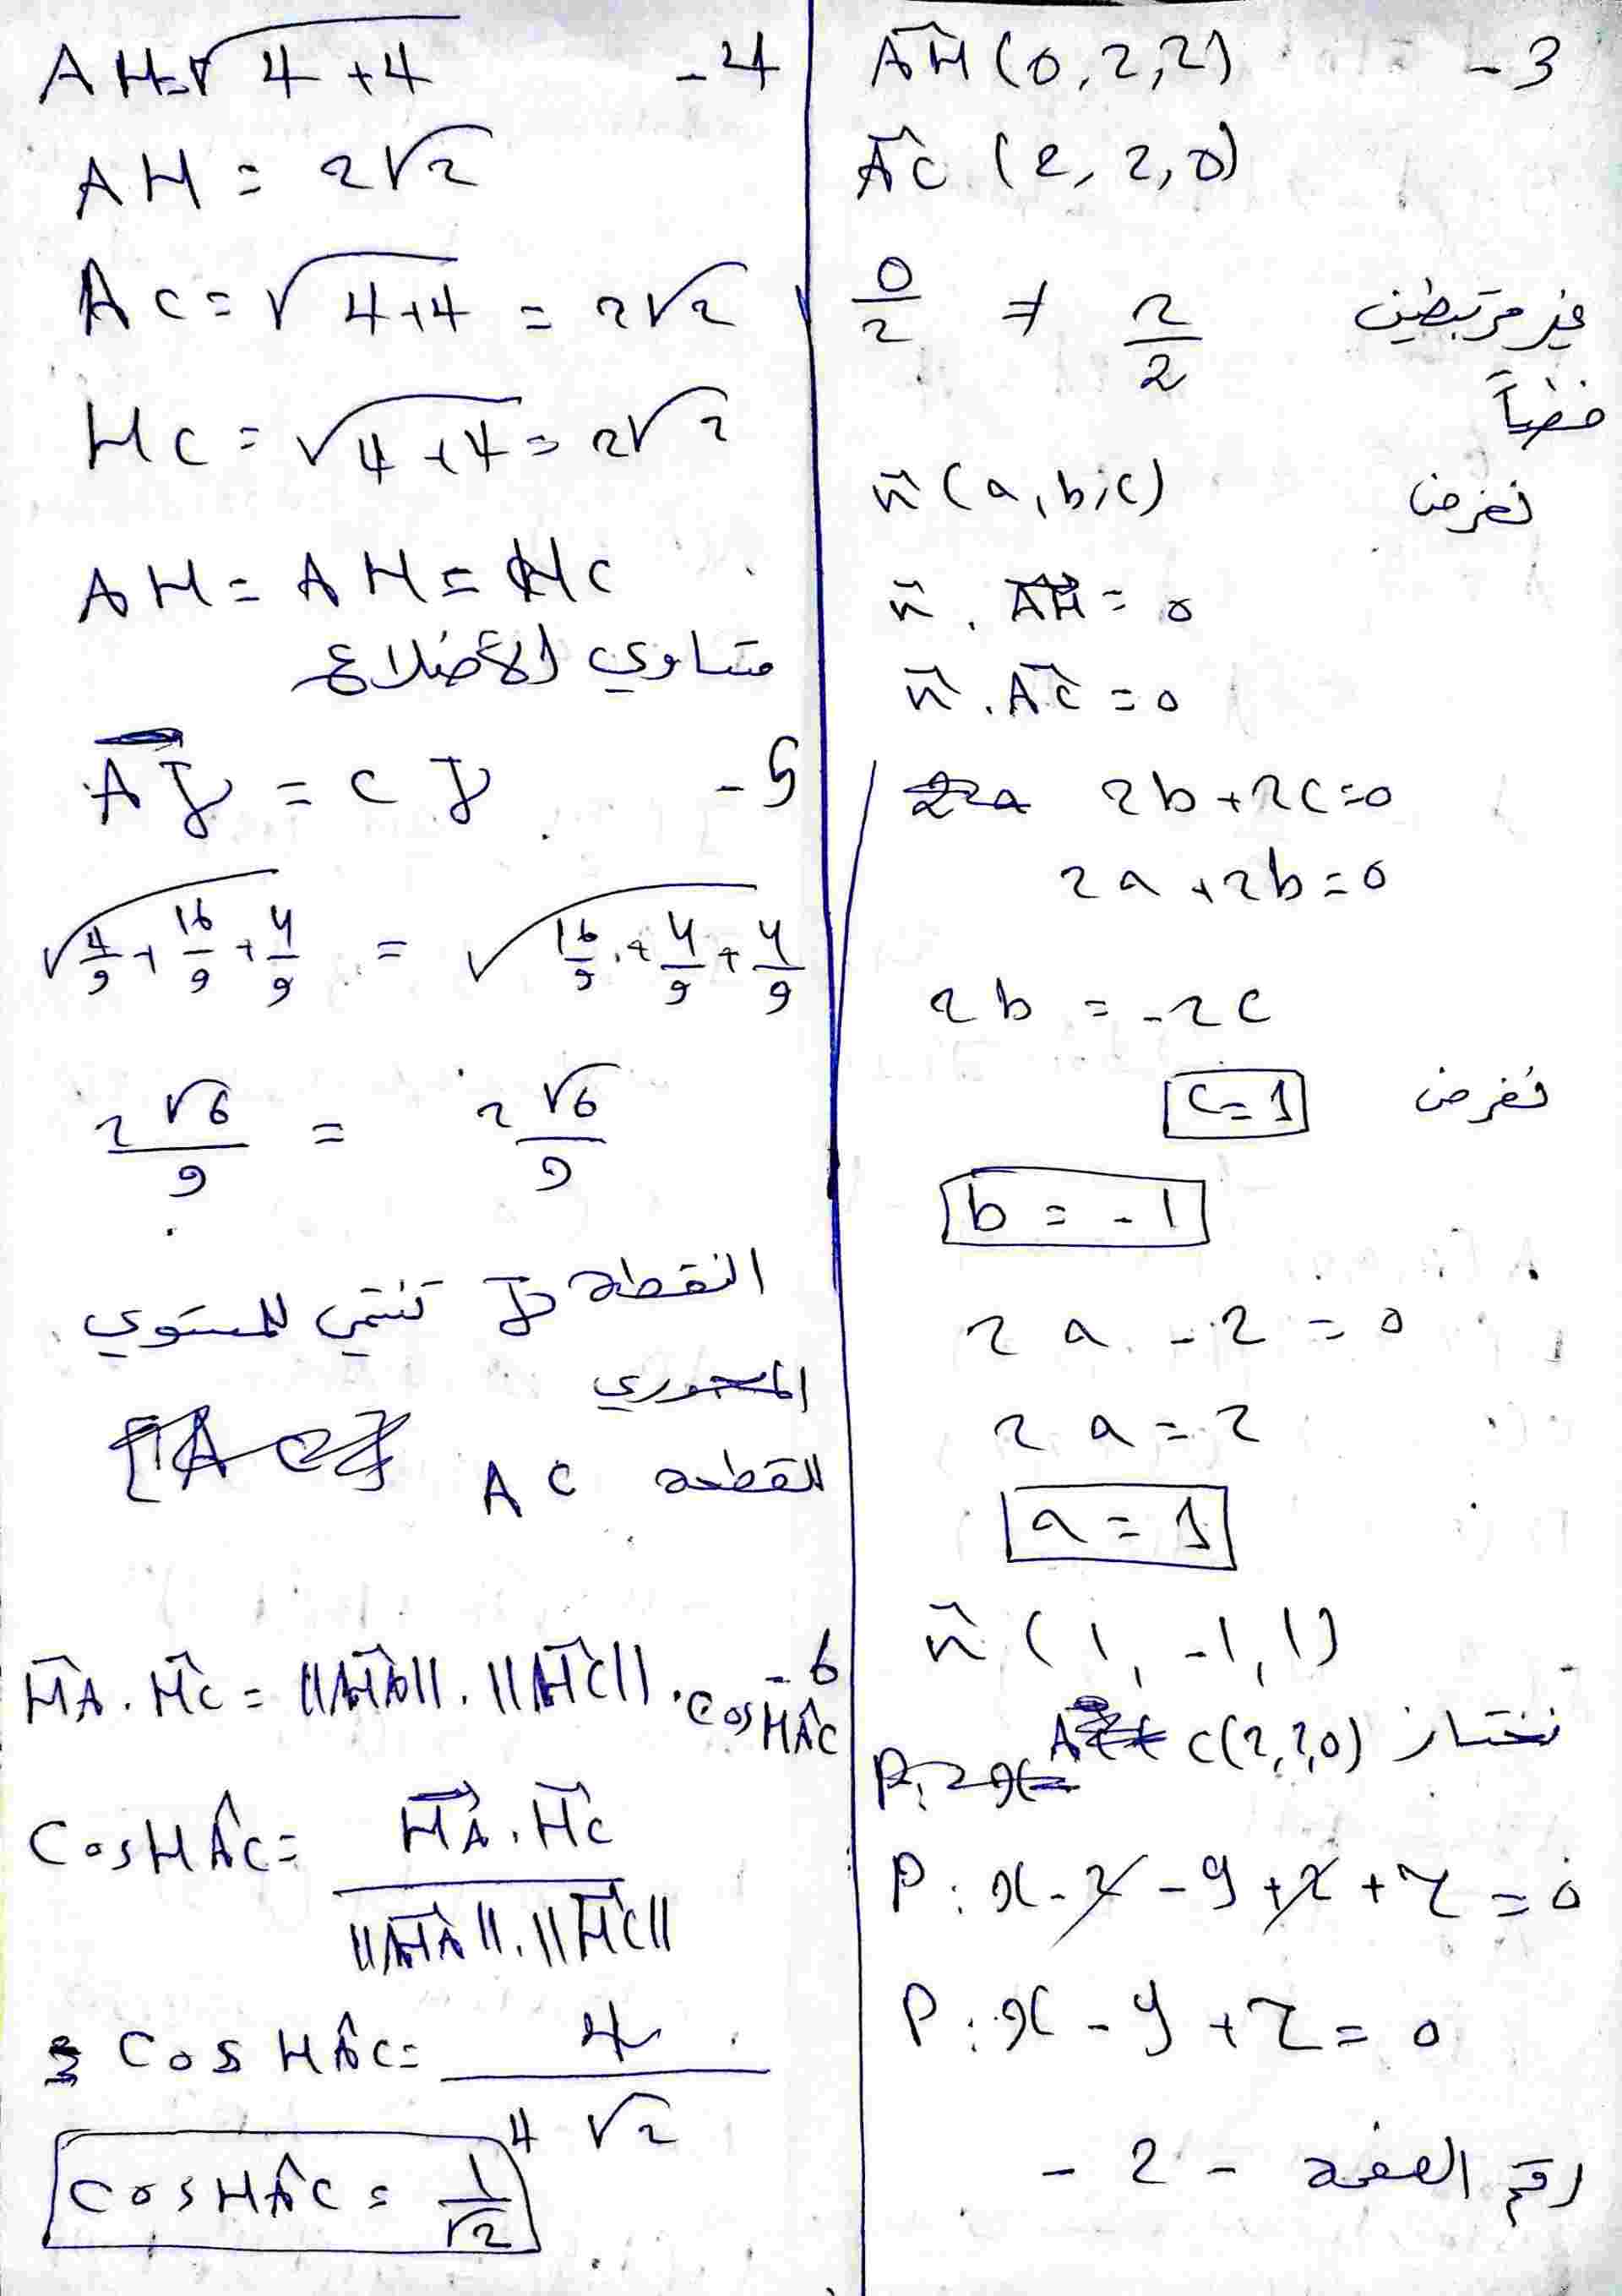 3 -
AH (0, 2, 2)
AC (2, 2, 0)
0/2 ≠ 2/2 غير مرتبطين
خطياً
نفرض n (a, b, c)
n . AH = 0
n . AC = 0
2b + 2c = 0
2a + 2b = 0
2b = -2c
نفرض c = 1
b = -1
2a - 2 = 0
2a = 2
a = 1
n (1, -1, 1)
نختار C(2,2,0)
P: x - 2 - y + 2 + z = 0
P: x - y + z = 0
رقم الصفحة - 2 -
4 -
AH = √4+4
AH = 2√2
AC = √4+4 = 2√2
HC = √4+4 = 2√2
AH = AH = HC
متساوي الأضلاع
5 -
AJ = CJ
√4/9 + 16/9 + 4/9 = √16/9 + 4/9 + 4/9
2√6/9 = 2√6/9
النقطة J تنتمي للمستوي
المحوري
للقطعة AC
6 -
HA . HC = ||HA|| . ||HC|| . cos HÂC
Cos HÂC = HA . HC / ||HA|| . ||HC||
Cos HÂC = 4 / 4√2
Cos HÂC = 1/√2